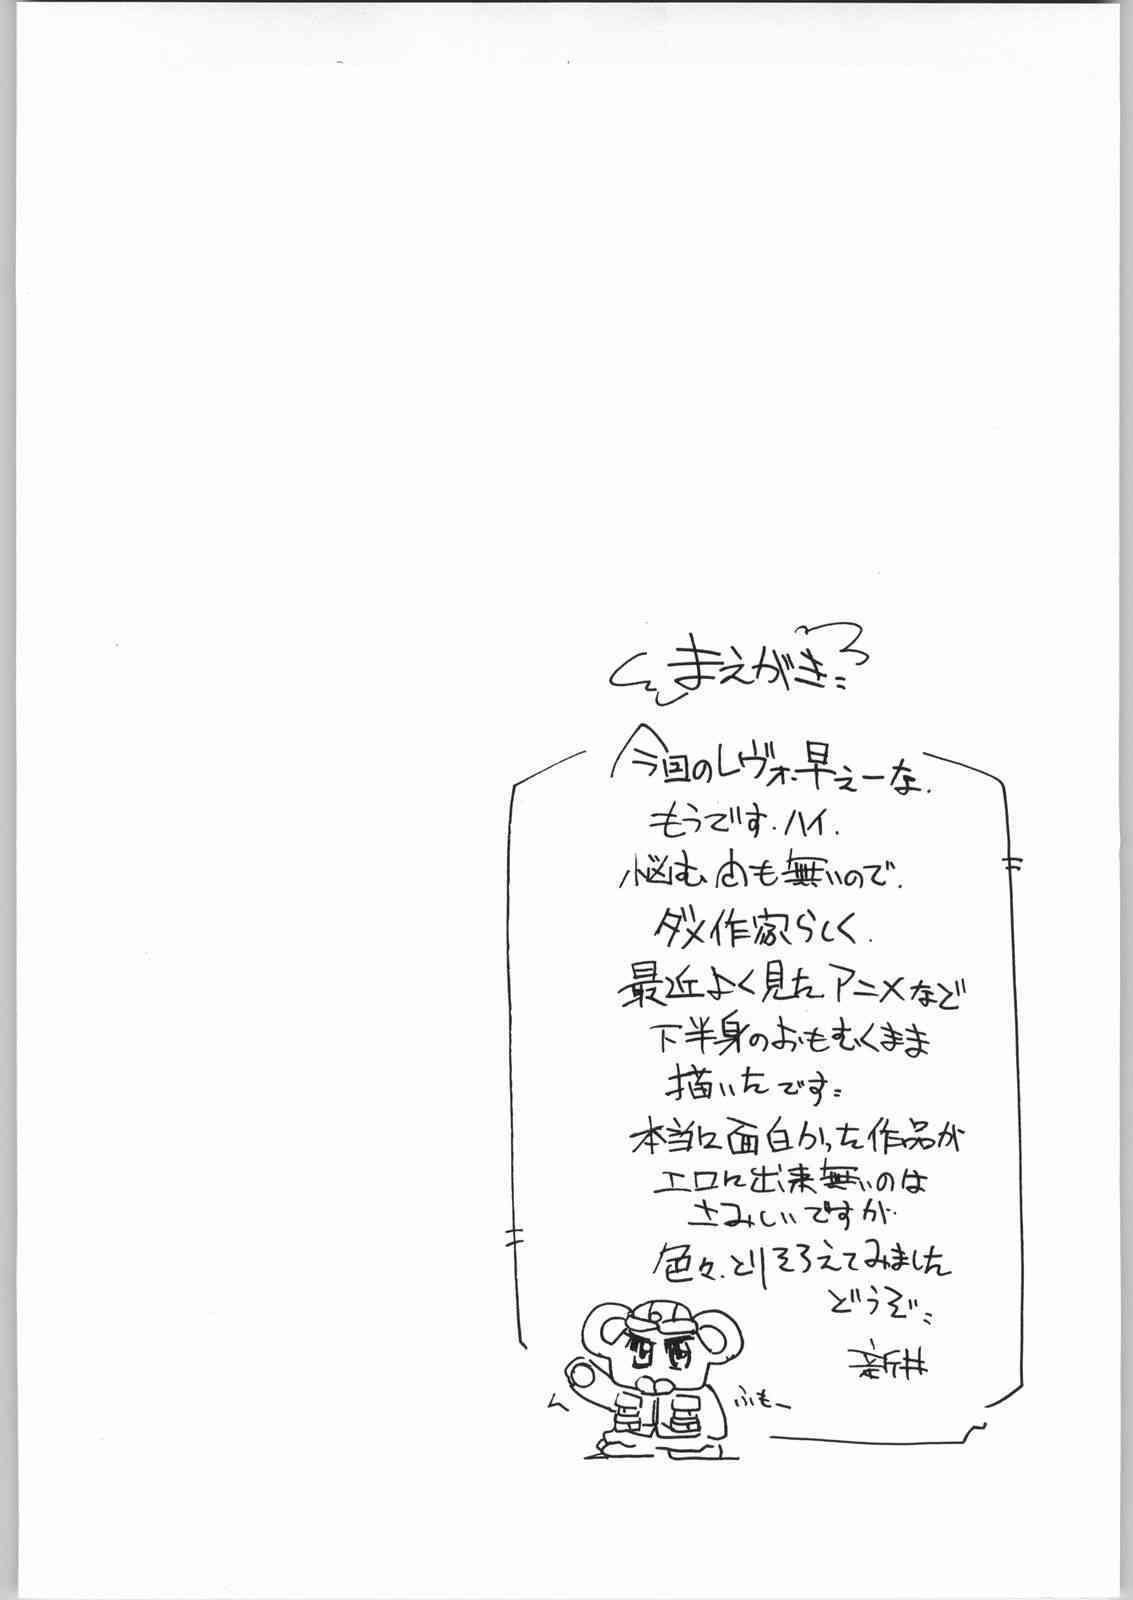 まえがき
今回のレヴォ早えーな.
もうです.ハイ.
悩む由も無いので.
ダメ作家らしく.
最近よく見たアニメなど
下半身のおもむくまま
描いたです
本当に面白かった作品が
エロに出来無いのは
さみしいですが
色々.とりそろえてみました
どうぞ
新井
ふもー